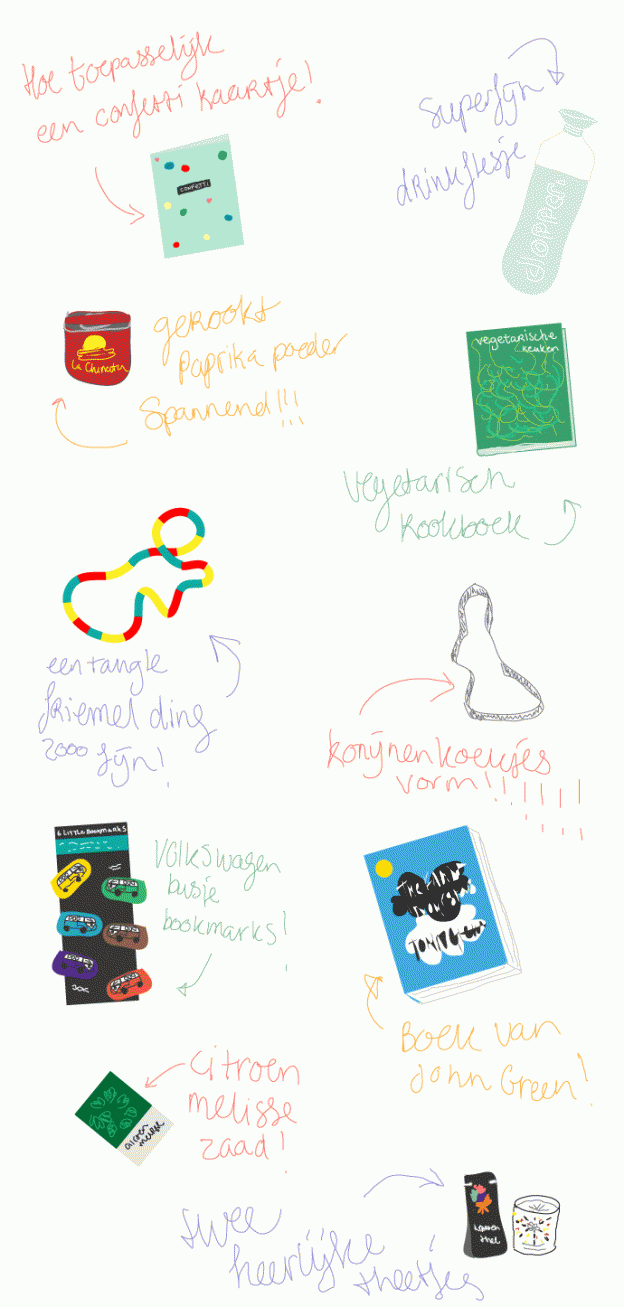 Hoe toepasselijk
een confetti kaartje!
CONFETTI
Superfijn
drinkflesje
dopper
gerookt
Paprika poeder
Spannend!!!
La Chinata
vegetarische
keuken
Vegetarisch
kookboek
een tangle
friemel ding
2000 fijn!
konijnenkoekjes
vorm!!!!!!!
6 Little Bookmarks
Volkswagen
busje
bookmarks!
Boek van
John Green!
citroen
melisse
zaad!
citroen
melisse
twee
heerlijke
theetjes
thee